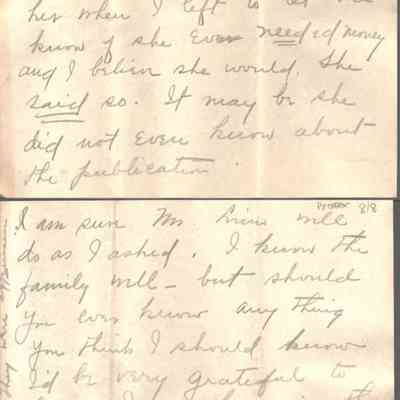 her when I left to let me
know if she ever needed money
and I believe she would. She
said so. It may be she
did not even know about
the publication.
8/8
I am sure will
do as I asked. I know the
family well - but should
you ever know any thing
you think I should know
I'd be very grateful to